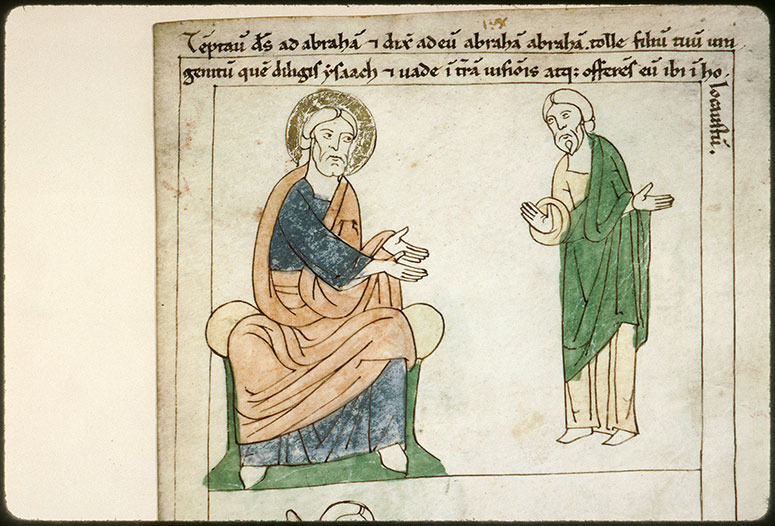 Tēptaū d̄s ad abrahā ⁊ dix̄ ad eū abrahā abrahā. tolle filiū tuū uni
genitū quē diligis ẏsaach ⁊ uade ī t̄rā uisiōis atq; offeres eū ibi ī ho
locaustū.